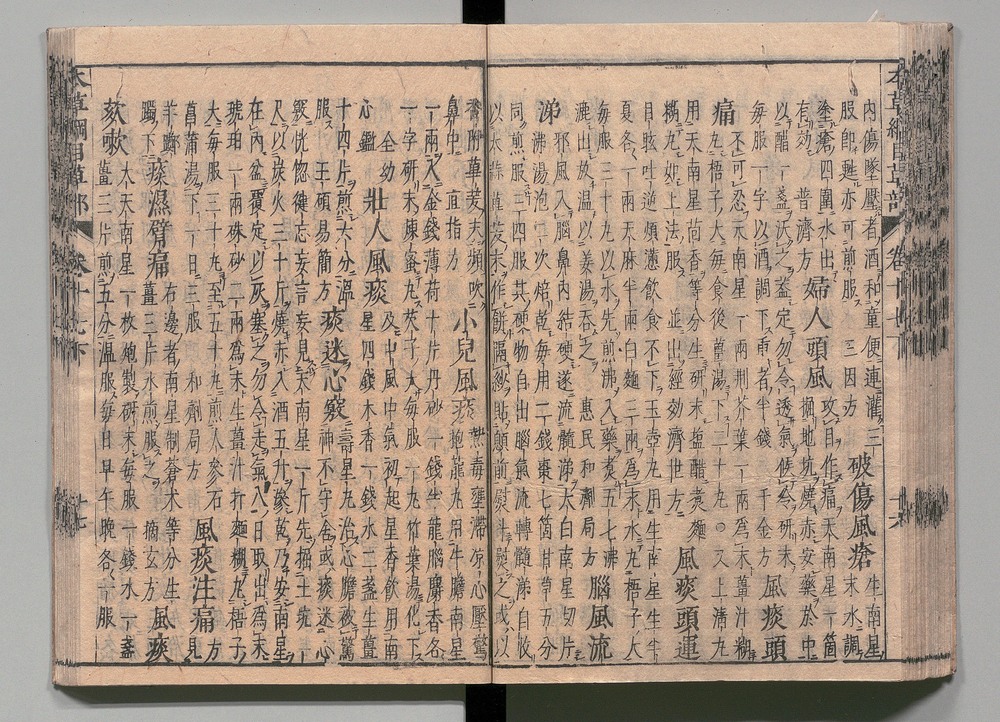 本草綱目草部 卷十七下 十六
内傷墜壓者酒和童便連灌三服即甦亦可煎服 三因方 破傷風瘡 生南星末水調
塗瘡四圍水出有効 普濟方 婦人頭風 攻目作痛天南星一箇掘地坑燒赤安藥於中
以醋一盞沃之蓋定勿令透氣候冷研末毎服一字以酒調下重者半錢 千金方 風痰頭
痛 不可忍天南星一兩荆芥葉一兩爲末薑汁糊丸梧子大毎食後薑湯下二十丸○又上清丸
用天南星茴香等分生研末塩醋煮麵糊丸如上法服 並出經効濟世方 風痰頭運
目眩吐逆煩懣飲食不下玉壺丸用生南星生半夏各一兩天麻半兩白麵三兩爲末水丸梧子大
毎服三十丸以水先煎沸入藥煮五七沸漉出放温以姜湯吞之 惠民和劑局方 腦風流
涕 邪風入腦鼻内結硬遂流髓涕大白南星切片沸湯泡二次焙乾毎用二錢棗七箇甘草五分
同煎服三四服其硬物自出腦氣流轉髓涕自收以大蒜蓽茇末作餅隔紗貼顖前熨斗熨之或以
香附蓽茇末頻吹鼻中 直指方 小兒風痰 熱毒壅滯凉心壓驚抱龍丸用牛膽南星
一兩入金錢薄荷十片丹砂一錢半龍腦麝香各一字研末煉蜜丸芡子大毎服一丸竹葉湯化下
全幼心鑑 壯人風痰 及中風中氣初起星香飲用南星四錢木香一錢水二盞生薑
十四片煎六分溫服 王碩易簡方 痰迷心竅 壽星丸治心膽被驚神不守舍或痰迷心
竅恍惚健忘妄言妄見天南星一斤先掘土坑一尺以炭火三十斤燒赤入酒五升滲乾乃安南星
在内盆覆定以灰塞之勿令走氣次日取出爲末琥珀一兩硃砂二兩爲末生薑汁打麵糊丸梧子
大毎服三十丸至五十丸煎人參石菖蒲湯下一日三服 和劑局方 風痰注痛 方見
羊躑躅下 痰濕臂痛 右邊者南星制蒼朮等分生薑三片水煎服之 摘玄方 風痰
欬嗽 大天南星一枚炮製研末毎服一錢水一盞薑三片煎五分温服毎日早午晚各一服
本草綱目草部 卷十七下 十七